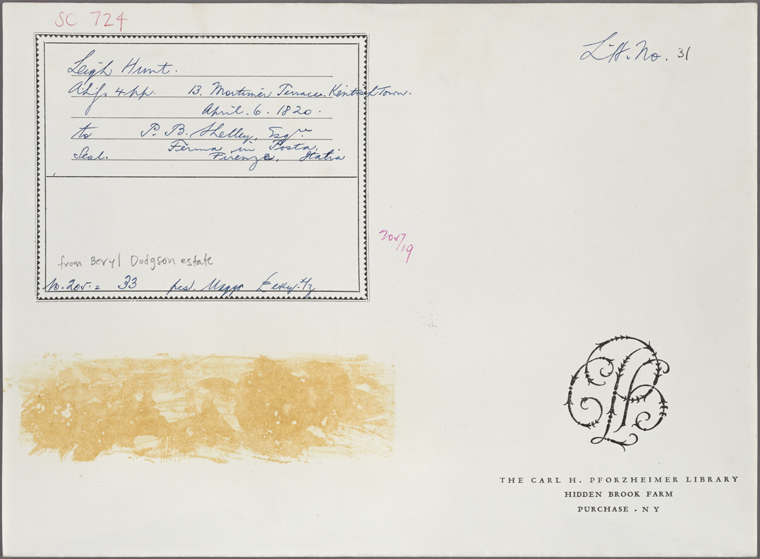 SC 724
L.H. No. 31
Leigh Hunt.
4pp. 13. Mortimer Terrace. Kentish Town.
April. 6. 1820.
to P. B. Shelley, Esqre
Ferma in Posta.
Seal. Firenze, Italia
from Beryl Dodgson estate
33
THE CARL H. PFORZHEIMER LIBRARY
HIDDEN BROOK FARM
PURCHASE . N Y